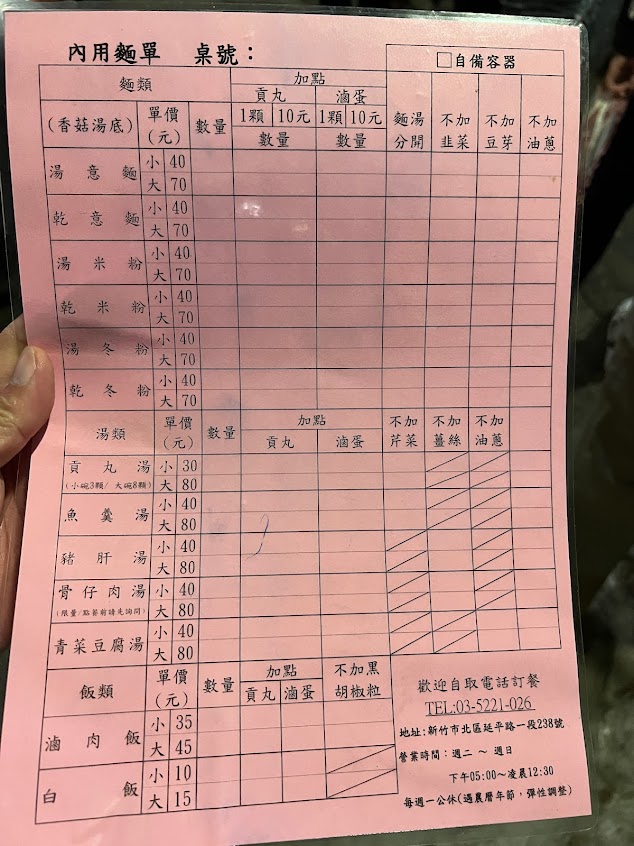 內用麵單 桌號：
□自備容器
麵類 加點
貢丸 滷蛋
(香菇湯底) 單價(元) 數量 1顆 10元 1顆 10元 麵湯分開 不加韭菜 不加豆芽 不加油蔥
數量 數量
湯意麵 小 40
大 70
乾意麵 小 40
大 70
湯米粉 小 40
大 70
乾米粉 小 40
大 70
湯冬粉 小 40
大 70
乾冬粉 小 40
大 70
湯類 單價(元) 數量 加點 不加芹菜 不加薑絲 不加油蔥
貢丸 滷蛋
貢丸湯 小 30
(小碗3顆/ 大碗8顆) 大 80
魚羹湯 小 40
大 80
豬肝湯 小 40
大 80
骨仔肉湯 小 40
(限量/點餐前請先詢問) 大 80
青菜豆腐湯 小 40
大 80
飯類 單價(元) 數量 加點 不加黑胡椒粒
貢丸 滷蛋
滷肉飯 小 35
大 45
白飯 小 10
大 15
歡迎自取電話訂餐
TEL:03-5221-026
地址:新竹市北區延平路一段238號
營業時間：週二 ～ 週日
下午05:00～凌晨12:30
每週一公休(遇農曆年節，彈性調整)